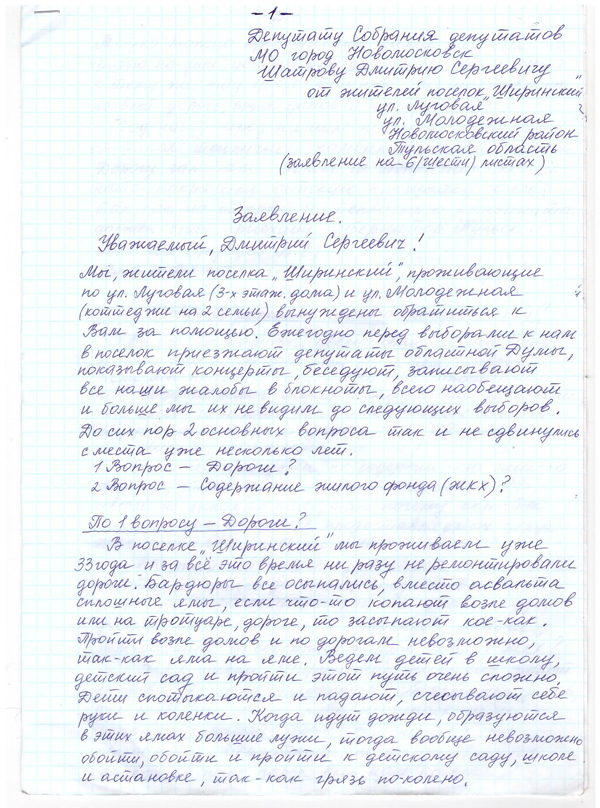 - 1 -
Депутату Собрания депутатов
МО город Новомосковск
Шатрову Дмитрию Сергеевичу
от жителей поселок „Ширинский"
ул. Луговая
ул. Молодежная
Новомосковский район
Тульская область
(заявление на 6(шести) листах)
Заявление.
Уважаемый, Дмитрий Сергеевич!
Мы, жители поселка „Ширинский", проживающие
по ул. Луговая (3-х этаж. дома) и ул. Молодежная
(коттеджи на 2 семьи) вынуждены обратиться к
Вам за помощью. Ежегодно перед выборами к нам
в поселок приезжают депутаты областной Думы,
показывают концерты, беседуют, записывают
все наши жалобы в блокноты, всего наобещают
и больше мы их не видим до следующих выборов.
До сих пор 2 основных вопроса так и не сдвинулись
с места уже несколько лет.
1 Вопрос — Дороги?
2 Вопрос — Содержание жилого фонда (ЖКХ)?
По 1 вопросу — Дороги?
В поселке „Ширинский" мы проживаем уже
33 года и за всё это время ни разу не ремонтировали
дороги. Бардюры все осыпались, вместо асвальта
сплошные ямы, если что-то копают возле домов
или на тротуаре, дороге, то засыпают кое-как.
Пройти возле домов и по дорогам невозможно,
так-как яма на яме. Ведем детей в школу,
детский сад и пройти этот путь очень сложно.
Дети спотыкаются и падают, счесывают себе
руки и коленки. Когда идут дожди, образуются
в этих ямах большие лужи, тогда вообще невозможно
обойти, обойти и пройти к детскому саду, школе
и астановке, так-как грязь по-колено.